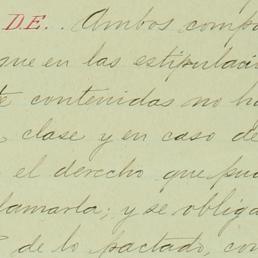 D.E. . Ambos comp
que en las estipulaci
te contenidas no ha
clase y en caso de
el derecho que pu
lamarla; y se obliga
de lo pactado, con